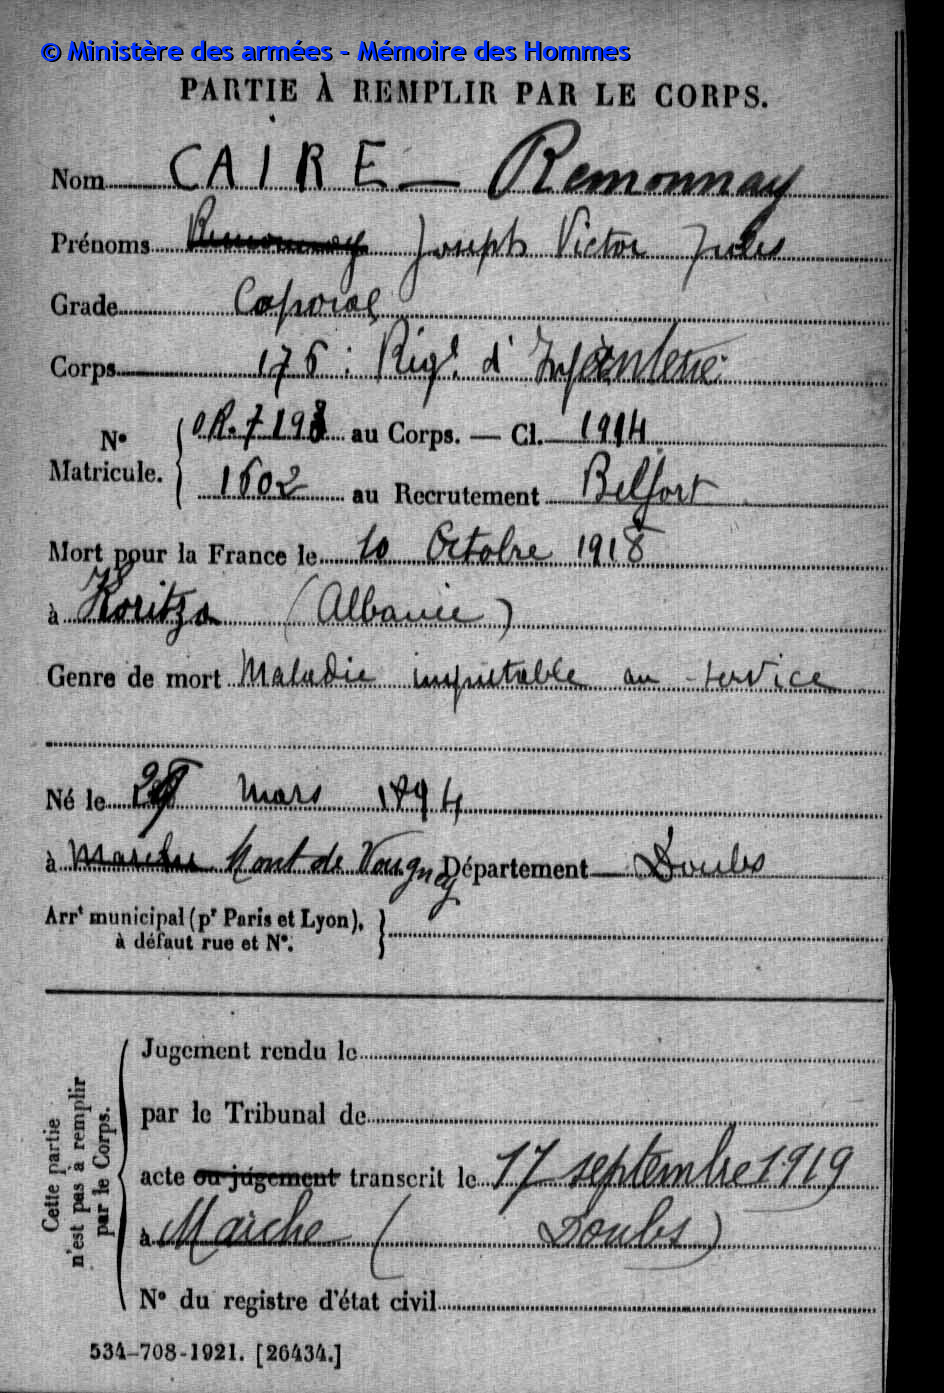 © Ministère des armées - Mémoire des Hommes
PARTIE À REMPLIR PAR LE CORPS.
Nom CAIRE — Remonnay
Prénoms Remonnay Joseph Victor Jules
Grade Caporal
Corps 176e Régt. d'Infanterie
N° Matricule. OR. 7193 au Corps. — Cl. 1914
1602 au Recrutement Belfort
Mort pour la France le 10 Octobre 1918
à Koritza (Albanie)
Genre de mort Maladie imputable au service
Né le Mars 1894
à Maiche Mont de Vougney Département Doubs
Arrt municipal (pr Paris et Lyon), à défaut rue et N°.
Cette partie n'est pas à remplir par le Corps.
Jugement rendu le
par le Tribunal de
acte ou jugement transcrit le 17 septembre 1919
à Maîche (Doubs)
N° du registre d'état civil
534-708-1921. [26434.]